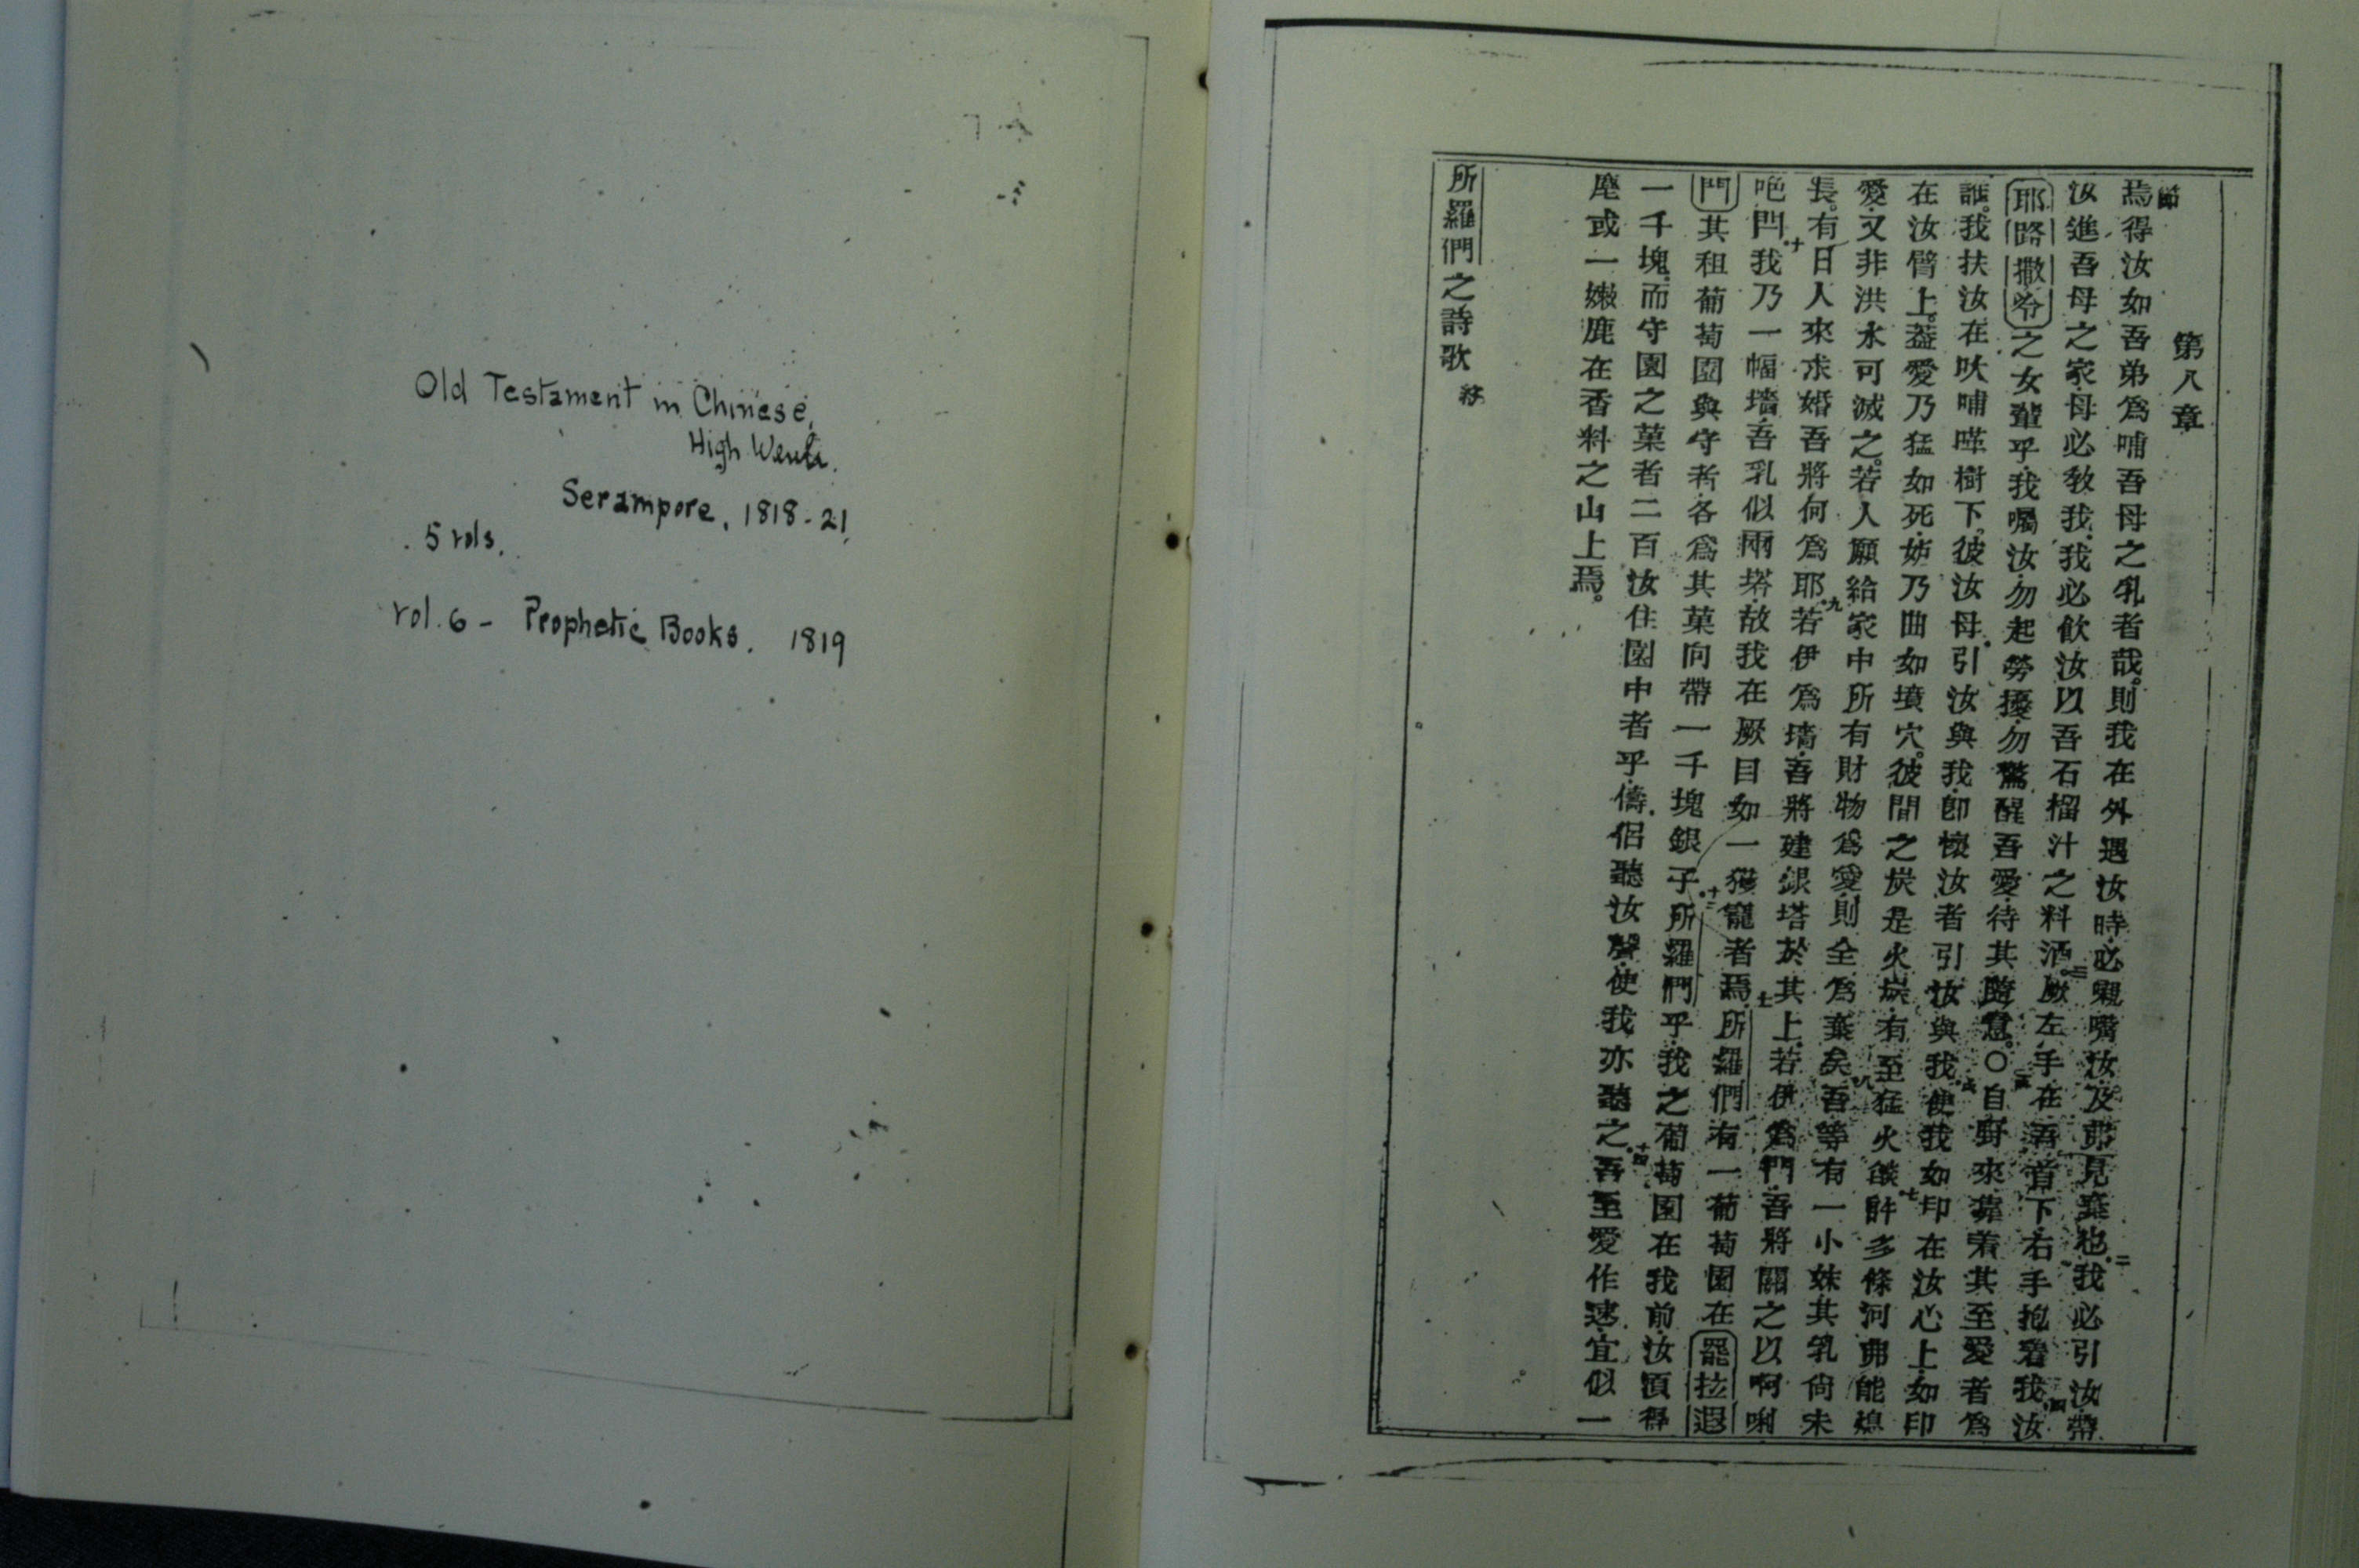 Old Testament in Chinese,
High Wenli.
Serampore, 1818-21
5 vols.
vol. 6 - Prophetic Books. 1819
第八章
節
焉得汝如吾弟爲哺吾母之乳者哉。則我在外遇汝時必親嘴汝及弗見棄也二我必引汝帶
汝進吾母之家母必教我我必飲汝以吾石榴汁之料酒三厥左手在吾首下右手抱着我四汝
耶路撒冷之女輩乎我囑汝勿起勞擾勿驚醒吾愛待其隨意。○五自野來靠着其至愛者爲
誰。我扶汝在吠哺嘩樹下。彼汝母引汝與我卽懷汝者引汝與我六使我如印在汝心上如印
在汝臂上。蓋愛乃猛如死妒乃曲如墳穴。彼間之炭是火炭有至猛火燄七許多條河弗能熄
愛又非洪水可滅之。若人願給家中所有財物爲愛則全爲棄矣八吾等有一小妹其乳尙未
長。有日人來求婚吾將何爲耶九若伊爲墻吾將建銀塔於其上若伊爲門吾將關之以啊唎
吧閂十我乃一幅墻吾乳似兩塔故我在厥目如一獲寵者焉十一所羅們有一葡萄園在罷拉遐
門其租葡萄園與守者各爲其菓向帶一千塊銀子十二所羅們乎我之葡萄園在我前汝須得
一千塊而守園之菓者二百汝住園中者乎儔侶聽汝聲使我亦聽之十四吾至愛作速宜似一
麈或一嫩鹿在香料之山上焉。
所羅們之詩歌 終